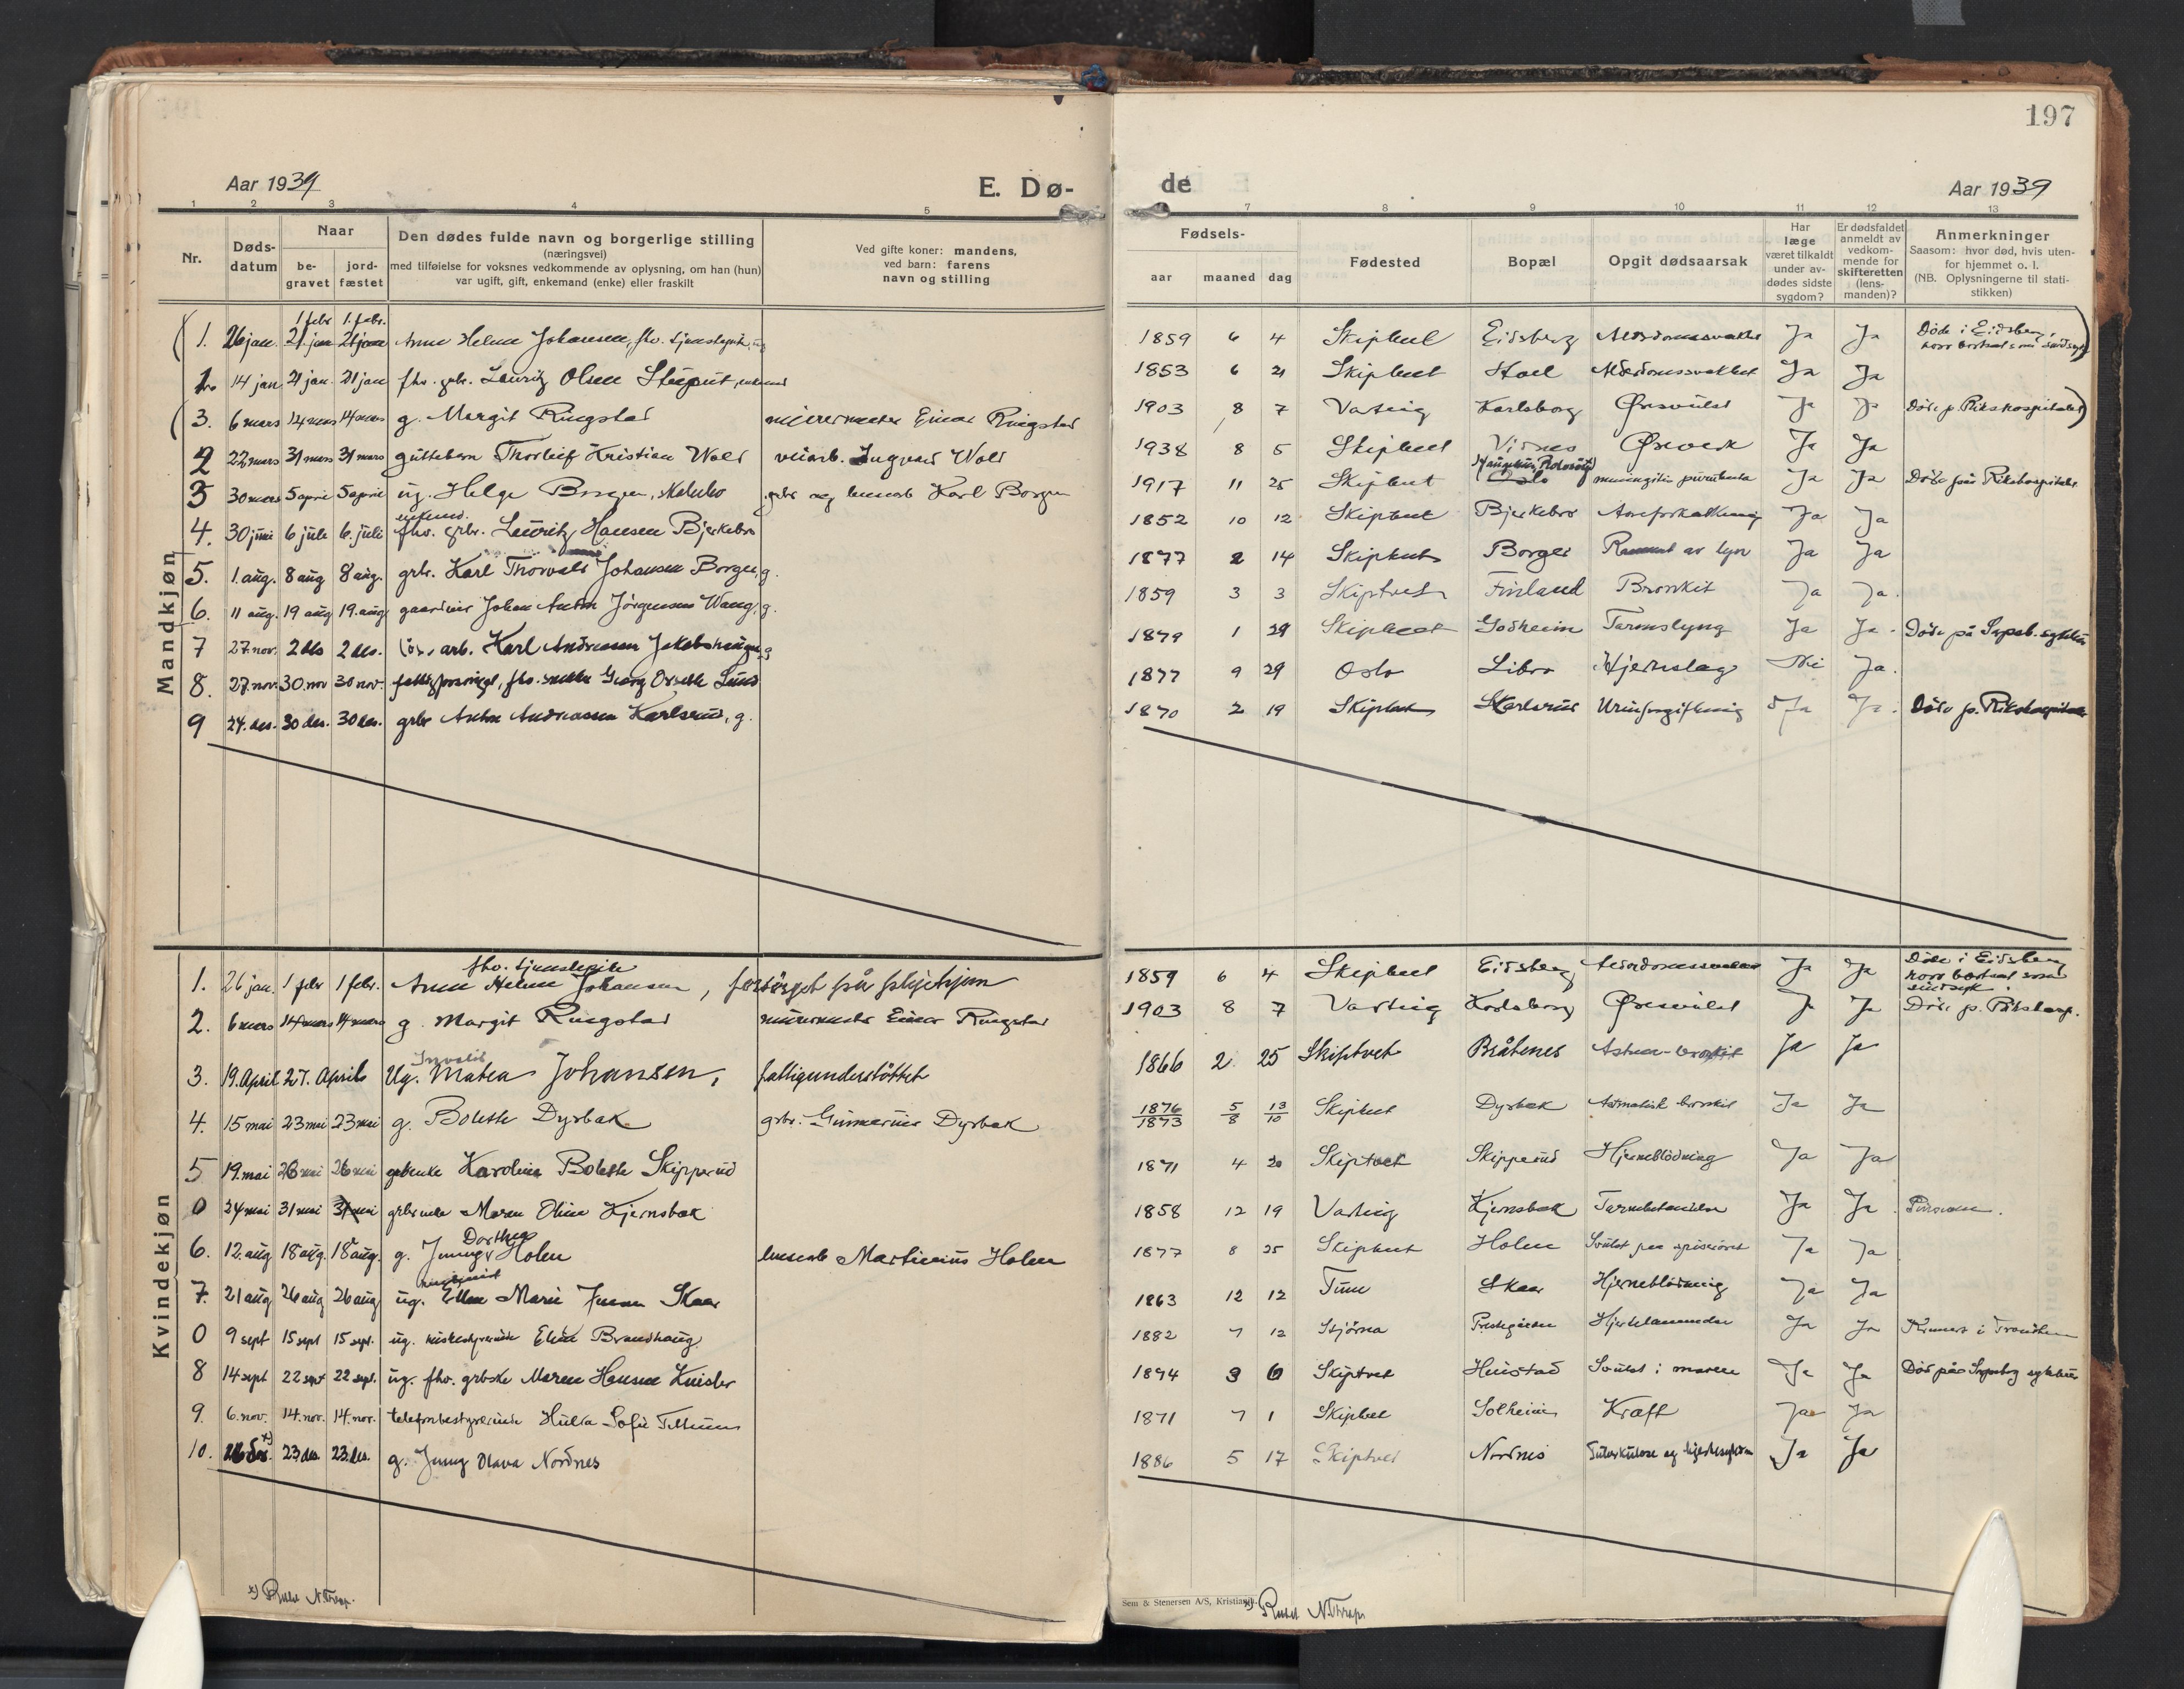 197
Aar 1939
E. Dø-
de
Aar 1939
1 2 3 4 5 7 8 9 10 11 12 13
Nr.
Døds-
datum
Naar
be-
gravet
jord-
fæstet
Den dødes fulde navn og borgerlige stilling
(næringsvei)
med tilføielse for voksnes vedkommende av oplysning, om han (hun)
var ugift, gift, enkemand (enke) eller fraskilt
Ved gifte koner: mandens,
ved barn: farens
navn og stilling
Fødsels-
aar maaned dag
Fødested
Bopæl
Opgit dødsaarsak
Har
læge
været tilkaldt
under av-
dødes sidste
sygdom?
Er dødsfaldet
anmeldt av
vedkom-
mende for
skifteretten
(lens-
manden)?
Anmerkninger
Saasom: hvor død, hvis uten-
for hjemmet o. l.
(NB. Oplysningerne til stati-
stikken)
Mandkjøn
1 febr 1. febr.
(1. 26 jan. 21. jan 21 jan Anne Helene Johansen, fhv. tjenestepike, ug 1859 6 4 Skiptvet Eidsberg Alderdomssvakhet Ja Ja Døde i Eidsberg,
hvor bortsat som sindssyk)
1. 14 jan 21 jan. 21 jan fhv. gbr. Lauritz Olsen 1853 6 21 Skiptvet Alderdomssvakhet Ja Ja
(3. 6 mars 14 mars 14 mars g. Margit Ringstad murermester Einar Ringstad 1903 8 7 Varteig Karlsborg Øresvulst Ja Ja Døde p. Rikshospitalet)
2 22 mars 31 mars 31 mars guttebarn Thorleif Kristian Wold veiarb. Ingvard Wold 1938 8 5 Skiptvet Vidnes Øreverk Ja Ja
3 30 mars 5 april 5 april ug. Helge Borgen, gbr og Karl Borgen 1917 11 25 Skiptvet Oslo meningitis purulenta Ja Ja Døde på Rikshospitalet
enkemd.
4. 30 juni 6 juli 6. juli fhv. grbr. Lauritz Hansen Bjerkebro 1852 10 12 Skiptvet Bjerkebro Aareforkalkning Ja Ja
5. 1. aug. 8 aug 8 aug. grbr. Karl Thorvald Johansen Borger, g. 1877 2 14 Skiptvet Borger Rammet av lyn Ja Ja
6. 11 aug. 19 aug 19. aug Johan Anton Jørgensen Wang, g. 1859 3 3 Skiptvet Finland Bronkit Ja Ja.
7 27. nov. 2 des 2 des. arb. Karl Andreassen g 1879 1 29 Skiptvet Godheim Tarmslyng Ja Ja. Døde på Sarpsb. sykehus
8. 27. nov. 30. nov 30 nov. fhv. Georg Lund 1877 9 29 Oslo Libro Hjerteslag Nei Ja.
9 24. des. 30 des. 30 des. grbr Anton Andreassen Karlsrud, g. 1870 2 19 Skiptvet Karlsrud Urinforgiftning Ja Ja. Døde p. Rikshospitalet
Kvindekjøn
fhv. tjenestepike
1. 26 jan. 1 febr 1 febr. Anne Helene Johansen, forsørget på pleiehjem 1859 6 4 Skiptvet Eidsberg Alderdomssvakhet Ja Ja Døde i Eidsberg
hvor bortsat som
sindssyk.
2. 6 mars 14 mars 14 mars g. Margit Ringstad murermester Einar Ringstad 1903 8 7 Varteig Karlsborg Øresvulst Ja Ja Døde p. Rikshosp.
Invalid
3. 19. April 27. April Ug. Matea Johansen, fattigunderstöttet 1866 2. 25 Skiptvet Bråtenes Astma-bronkit Ja Ja
4. 15 mai 23 mai 23 mai g. Bolette Dysbak grbr. Gunnerius Dysbak 1876 5 13 Skiptvet Dysbak Astmatisk bronkit Ja Ja
1873 8 10
5 19. mai 26 mai 26 mai gbrenke Karoline Bolette Skipperud 1871 4 20 Skiptvet Skipperud Hjerneblødning Ja Ja
0 24 mai 31 mai 31 mai grbrenke Maren Oline Kjernsbæk 1858 12 19 Varteig Kjernsbæk Ja Ja.
Dorthea
6. 12. aug 18 aug. 18 aug. g. Jenny Holen Martinius Holen 1877 8 25 Skiptvet Holen Svulst paa spiserøret Ja Ja
7. 21 aug 26 aug 26 aug ug. Ellen Marie Skaar 1863 12 12 Tune Skaar Hjerneblødning Ja Ja
0 9 sept 15 sept 15 sept. ug. Brandhaug 1882 7 12 Stjørna Prestegården Ja Ja i Trondheim
8 14 sept 22 sept 22 sept. ug. fhv. Maren Hansen 1874 3 6 Skiptvet Svulst i maven Ja Ja Død på Sarpsborg sykehus
9. 6. nov. 14. nov. 14. nov. telefonbestyrerinde Hulda Sofie 1871 7 1 Skiptvet Solheim Kræft Ja Ja
10. 23. des. 23. des. g. Jenny Olava Nordnes 1886 5 17 Skiptvet Nordnes Tuberkulose og hjertesykdom Ja Ja
x) Rettet N. Thrap.
Sem & Stenersen A/S, Kristiania.
x) Rettet N. Thrap.